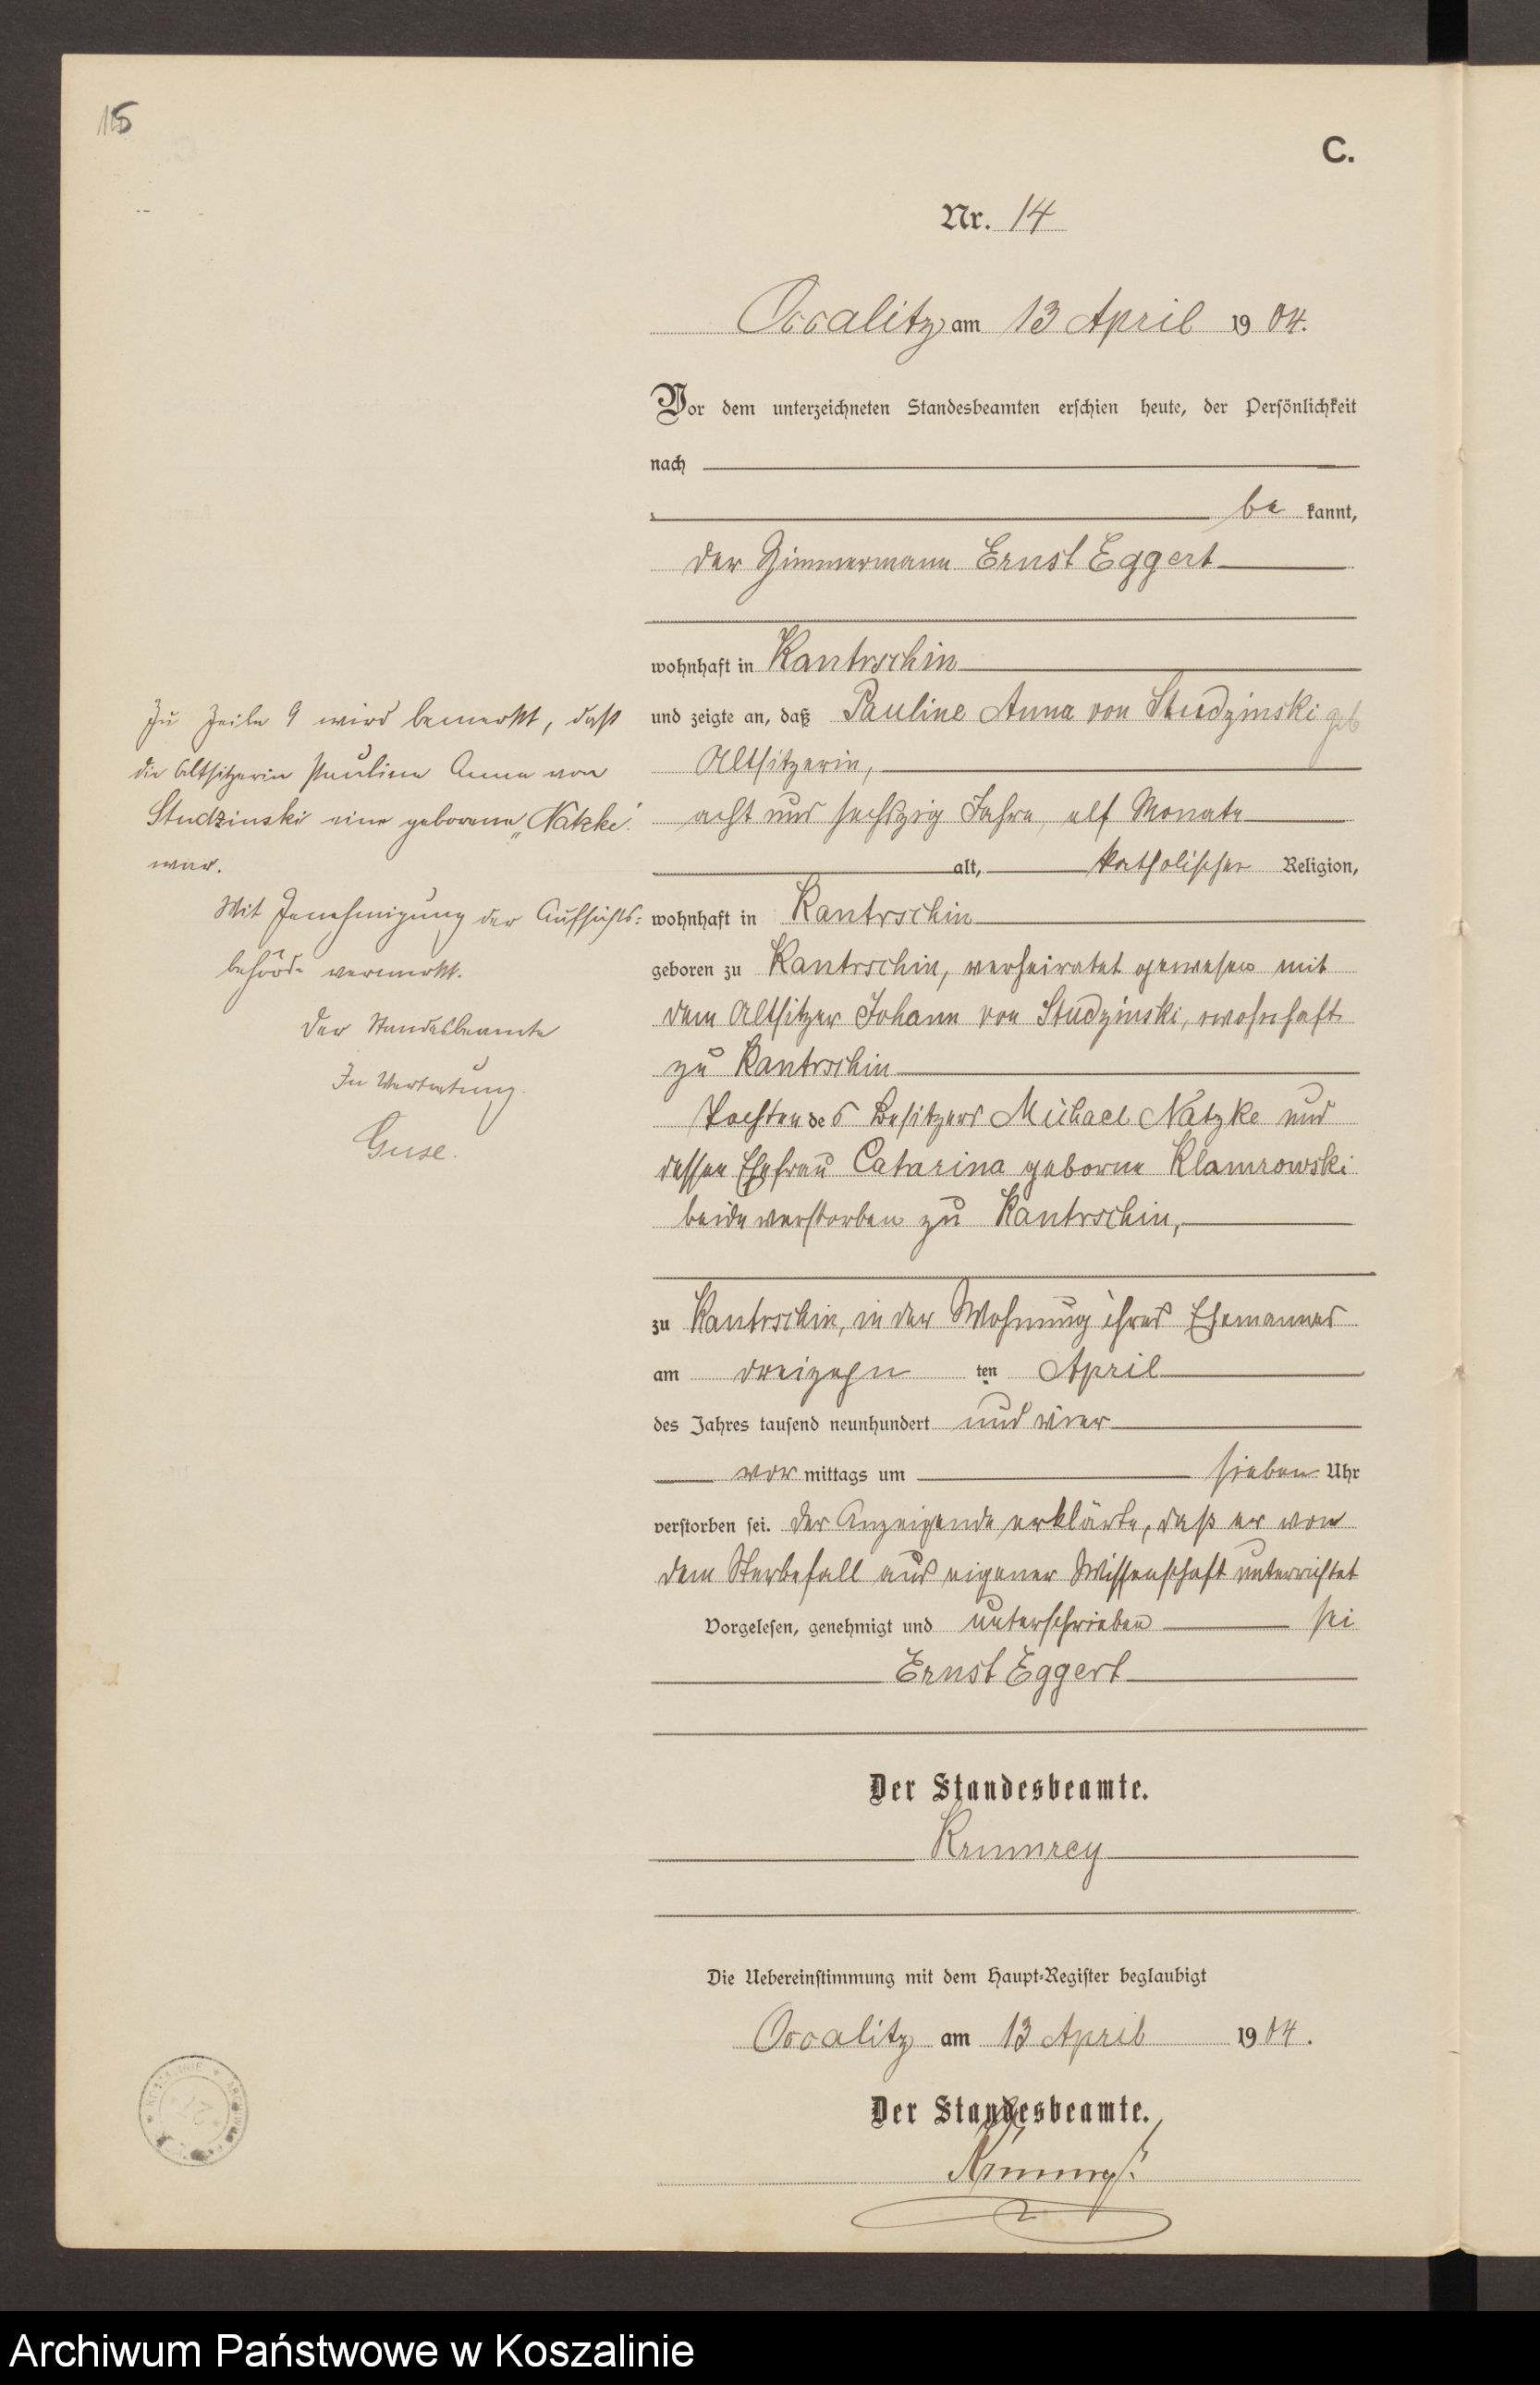 15
C.
Nr. 14
Occalitz am 13 April 1904.
Vor dem unterzeichneten Standesbeamten erschien heute, der Persönlichkeit
nach
be kannt,
der Zimmermann Ernst Eggert
wohnhaft in Kantrschin
und zeigte an, daß Pauline Anna von Studzinski geb
Altsitzerin,
acht und sechszig Jahre, elf Monate
alt, katholischer Religion,
wohnhaft in Kantrschin
geboren zu Kantrschin, verheiratet gewesen mit
dem Altsitzer Johann von Studzinski, wohnhaft
zu Kantrschin
Tochter des Besitzers Michael Natzke und
dessen Ehefrau Catarina geborne Klamrowski
beide verstorben zu Kantrschin,
zu Kantrschin, in der Wohnung ihres Ehemannes
am dreizehn ten April
des Jahres tausend neunhundert und vier
vor mittags um sieben Uhr
verstorben sei. Der Anzeigende erklärte, daß er von
dem Sterbefall aus eigener Wissenschaft unterrichtet
Vorgelesen, genehmigt und unterschrieben sei
Ernst Eggert
Der Standesbeamte.
Krumrey
Die Uebereinstimmung mit dem Haupt-Register beglaubigt
Occalitz am 13 April 1904.
Der Standesbeamte.
Krumrey
Zu Zeile 9 wird bemerkt, daß
die Altsitzerin Pauline Anna von
Studzinski eine geborene „Natzke"
war.
Mit Genehmigung der Aufsichts-
behörde vermerkt.
Der Standesbeamte
In Vertretung.
Guse.
Archiwum Państwowe w Koszalinie